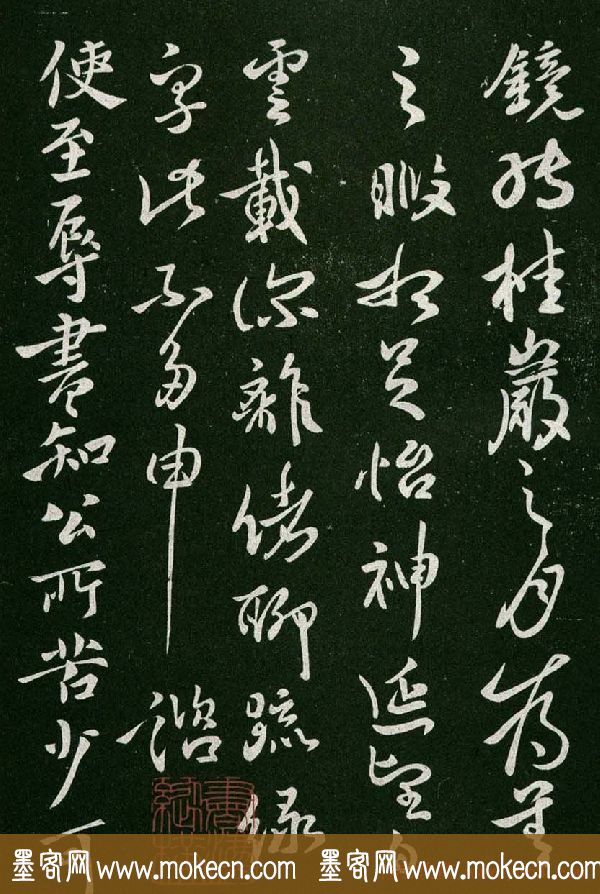 鏡轉桂巖之月為善
之暇想足怡神延望白
雲載深離緒聊疏緑
字此不多申 諮
使至辱書知公所苦少可
墨客网 www.mokecn.com 墨客网 www.mokecn.com